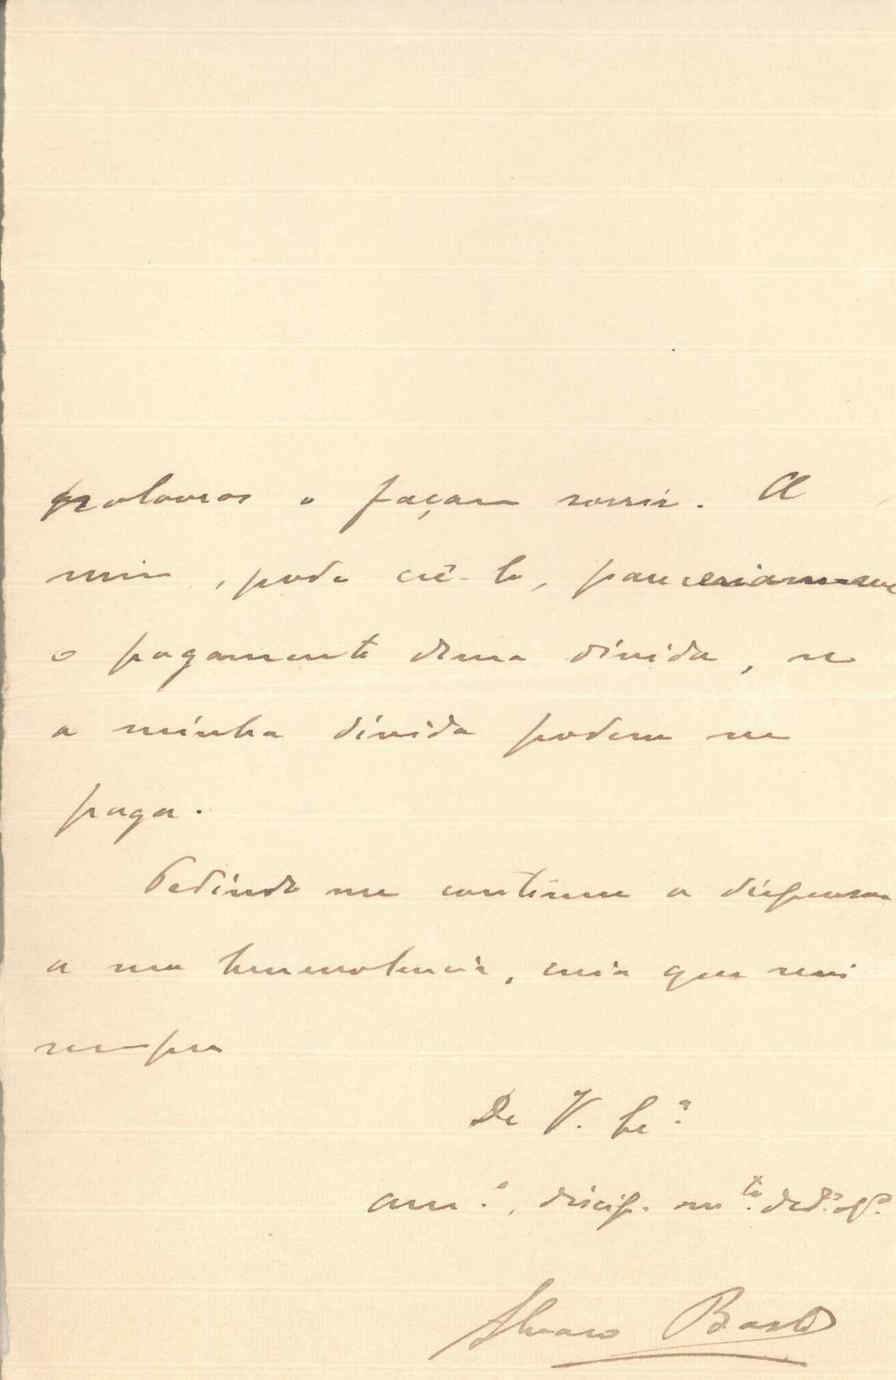 palavras o façam sorrir. A
mim, pode crê-lo, pareceriam-me
o pagamento duma dívida, se
a minha dívida podesse ser
paga.
Pedindo me continue a dispensar
a sua benevolencia, creia que serei
sempre
De V. Ex.ª
am.º, discip. m.to ded.º
Alvaro Basto